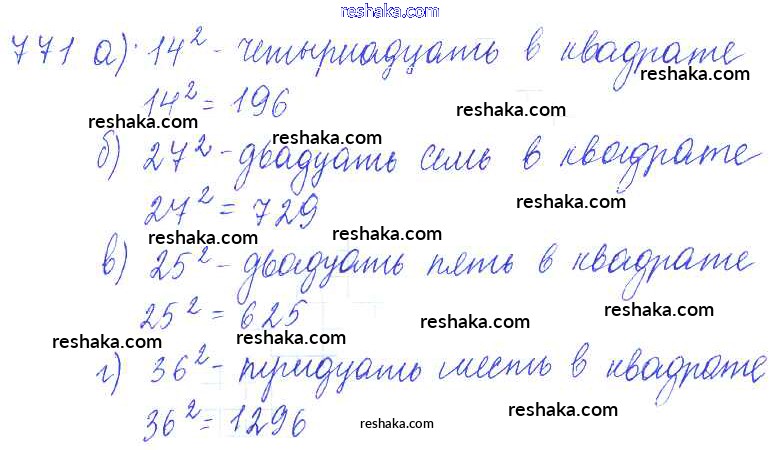 reshaka.com
771 а) 14² - четырнадцать в квадрате
reshaka.com
14² = 196
reshaka.com
reshaka.com
reshaka.com
б) 27² - двадцать семь в квадрате
reshaka.com
27² = 729
reshaka.com
reshaka.com
в) 25² - двадцать пять в квадрате
25² = 625
reshaka.com
reshaka.com
reshaka.com
г) 36² - тридцать шесть в квадрате
36² = 1296
reshaka.com
reshaka.com